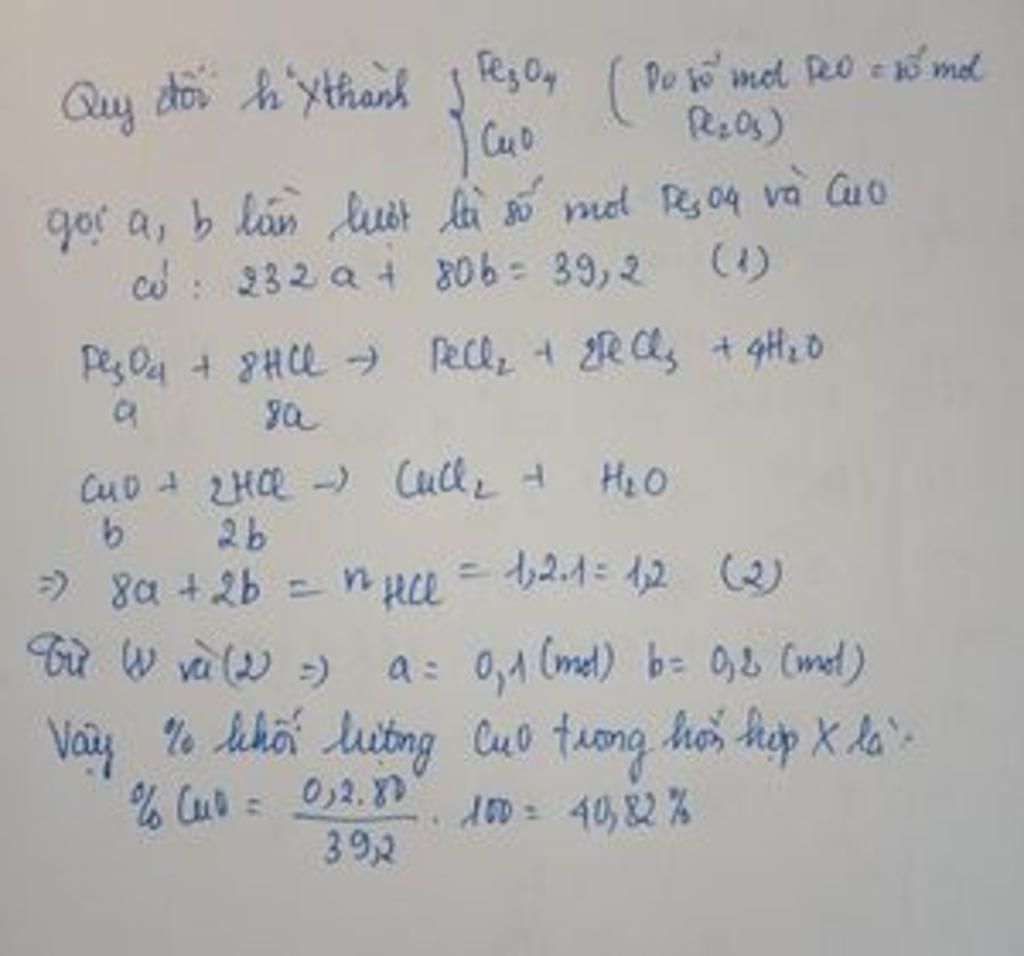 Quy đổi h² X thành { Fe3O4 ( Do số mol FeO = số mol
CuO Fe2O3)
gọi a, b lần lượt là số mol Fe3O4 và CuO
có : 232a + 80b = 39,2 (1)
Fe3O4 + 8HCl → FeCl2 + 2FeCl3 + 4H2O
a 8a
CuO + 2HCl → CuCl2 + H2O
b 2b
=> 8a + 2b = nHCl = 1,2.1 = 1,2 (2)
Từ (1) và (2) => a = 0,1 (mol) b = 0,2 (mol)
Vậy % khối lượng CuO trong hỗn hợp X là:
% CuO = 0,2.80 / 39,2 . 100 = 40,82 %